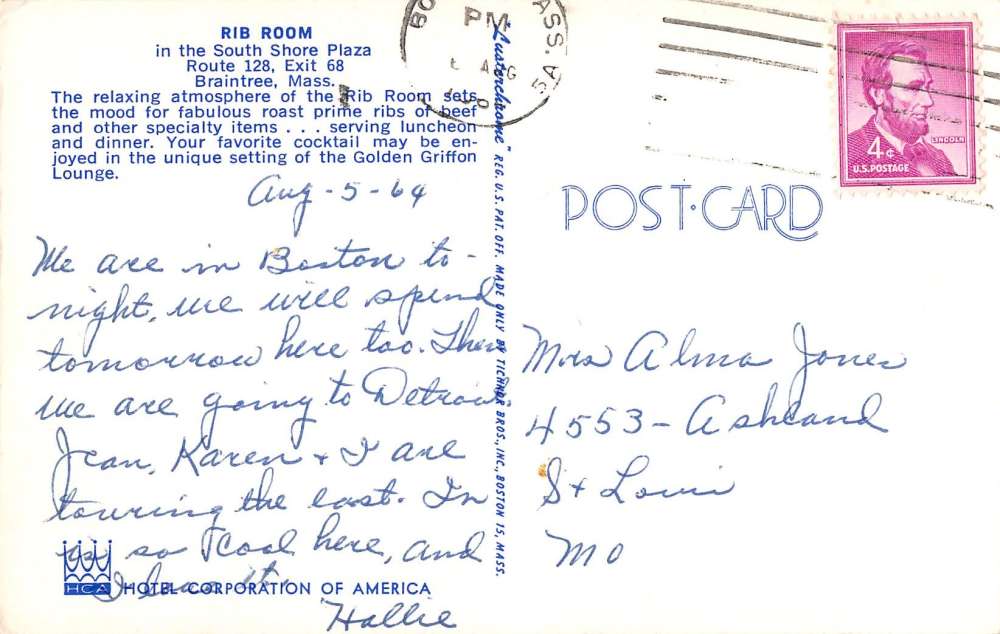 RIB ROOM
in the South Shore Plaza
Route 128, Exit 68
Braintree, Mass.
The relaxing atmosphere of the Rib Room sets
the mood for fabulous roast prime ribs of beef
and other specialty items . . . serving luncheon
and dinner. Your favorite cocktail may be en-
joyed in the unique setting of the Golden Griffon
Lounge.
Aug - 5 - 64
We are in Boston to-
night, we will spend
tomorrow here too. Then
we are going to Detroit
Jean, Karen + I are
touring the east. It
is so cool here, and
I love it.
Hallie
HCA HOTEL CORPORATION OF AMERICA
"Lusterchrome" REG. U.S. PAT. OFF. MADE ONLY BY TICHNOR BROS., INC., BOSTON 15, MASS.
PM
AUG
MASS.
4¢
LINCOLN
U.S. POSTAGE
POST·CARD
Mrs Alma Jones
4553 - Ashland
St Louis
MO